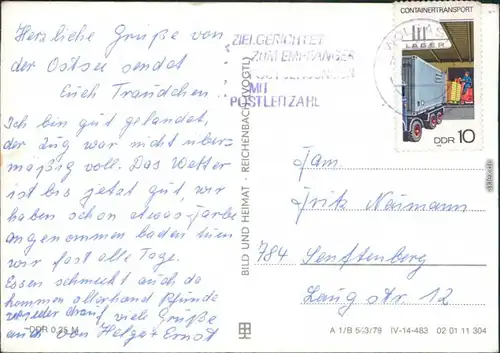 Herzliche Grüße von
der Ostsee sendet
Euch Traudchen.
Ich bin gut gelandet,
der Zug war nicht über-
mäßig voll. Das Wetter
ist bis jetzt gut, wir
haben schon etwas Farbe
angenommen baden tun
wir fast alle Tage.
Essen schmeckt auch da
kommen allerhand Pfunde
wieder drauf viele Grüße
auch von Helga + Ernst
DDR 0,25 M
BILD UND HEIMAT · REICHENBACH (VOGTL)
ZIELGERICHTET
ZUM EMPFÄNGER
MIT
POSTLEITZAHL
CONTAINERTRANSPORT
LAGER
DDR 10
Fam.
Fritz Neumann
784 Senftenberg
Lang str. 12
A 1/B 543/79 IV-14-483 02 01 11 304